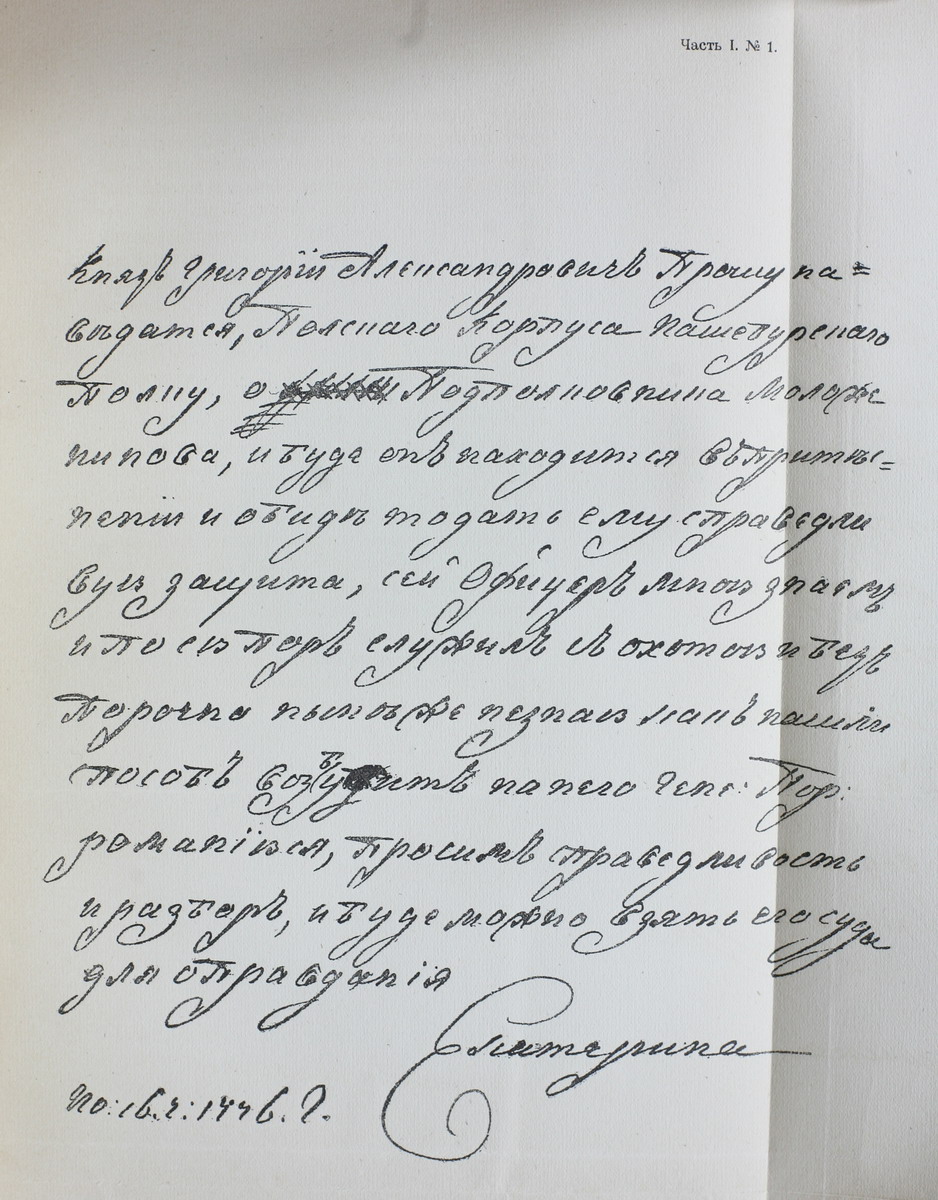 Часть I. № 1.
Князь Григорій Александровичь Прошу на=
вѣдатся, Полскаго Корпуса
Полку, о Подполковника Моложе
нинова, и буде онъ находится въ притѣс=
неніи и обидѣ подать ему справедли
вую защита, сей Офицеръ мною знаемъ
и по сю поръ служилъ съ охотою и безъ
порочно нынѣ же незнаю какъ нашли
способъ возбудить на него Гене: Пор:
романіуся, просимъ праведливость
и разборъ, и буде можно взять его суды
для оправданія
Екатерина
Но: 16. ч: 1776. г.